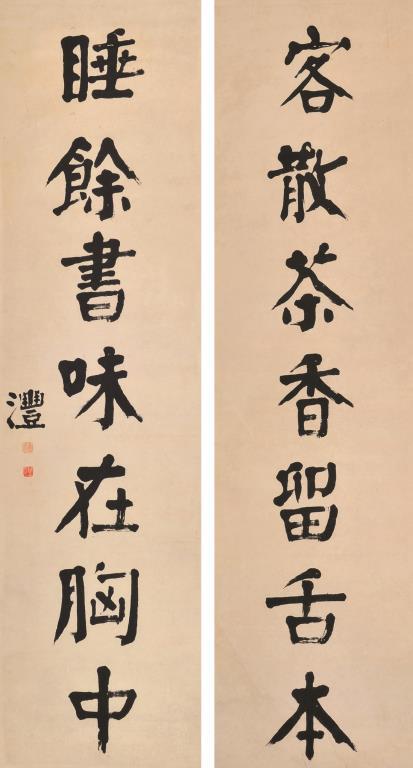 客散茶香留舌本
睡餘書味在胸中
灃